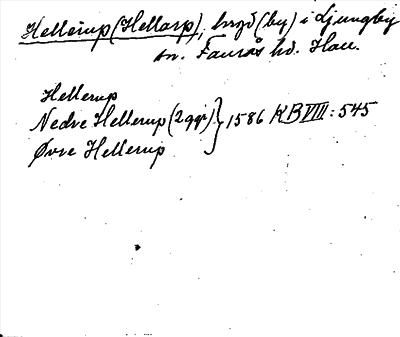 Hellerup (Hellarp), bygd (by) i Ljungby
sn. Faurås hd. Hall.
Hellerup
Nedre Hellerup (2 ggr) } 1586 KB VIII: 545
Øvre Hellerup